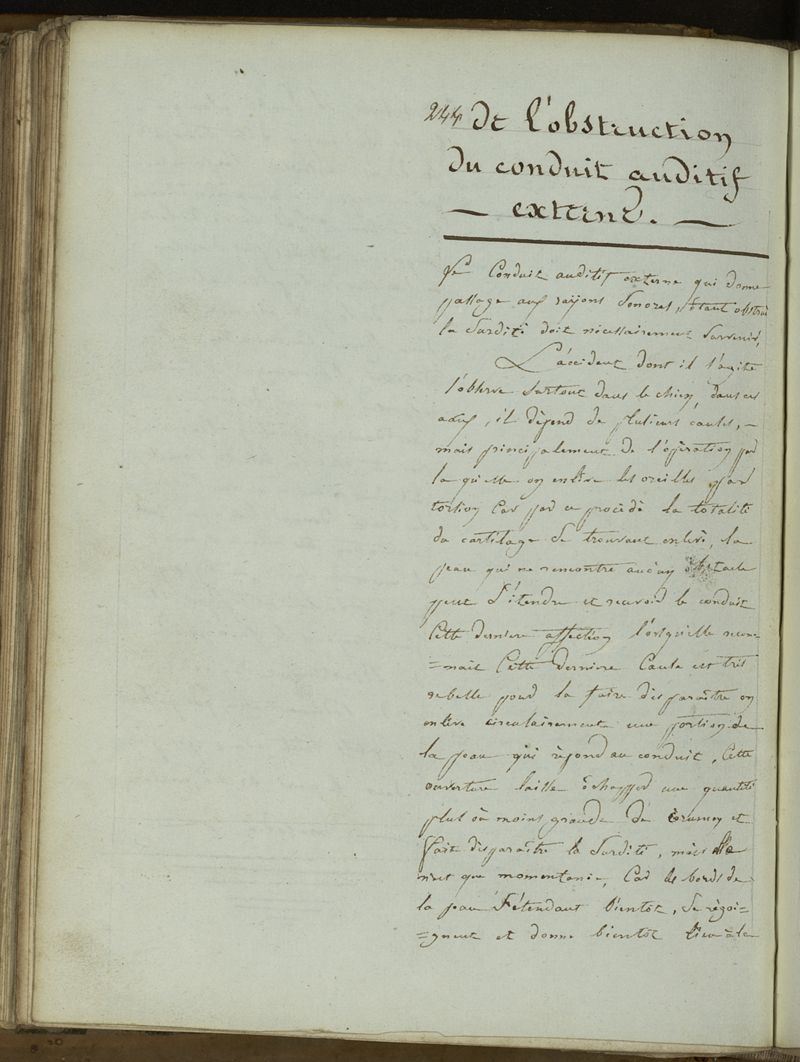 244 de l'obstruction
du conduit auditif
— externe. —
Le Conduit auditif externe qui donne
passage aux rayons Sonores, étant obstrué
la Surdité doit nécessairement Survenir,
L'accident dont il s'agite
s'observe Surtout dans le chien, dans ces
, il dépend de plusieurs causes, —
mais principalement de l'opération par
la qu'elle on enlève les oreilles par
torsion Car par ce procédé la totalité
du cartilage Se trouvant enlevé, la
peau qui ne rencontre aucun obstacle
peut S'étendre et recouvrir le conduit
Cette derniere affection l'orsqu'elle recon
=nait Cette derniere Cause est très
rebelle pour la faire disparaître on
enlève circulairement une portion de
la peau qui répond au conduit, Cette
ouverture laisse échapper une quantité
plus ou moins grande de Cérumen et
fait disparaître la Surdité, mais elle
n'est que momentanée, Car les bords de
la peau S'étendant bientôt, Se réjoi=
=gnent et donne bientôt lieu à la